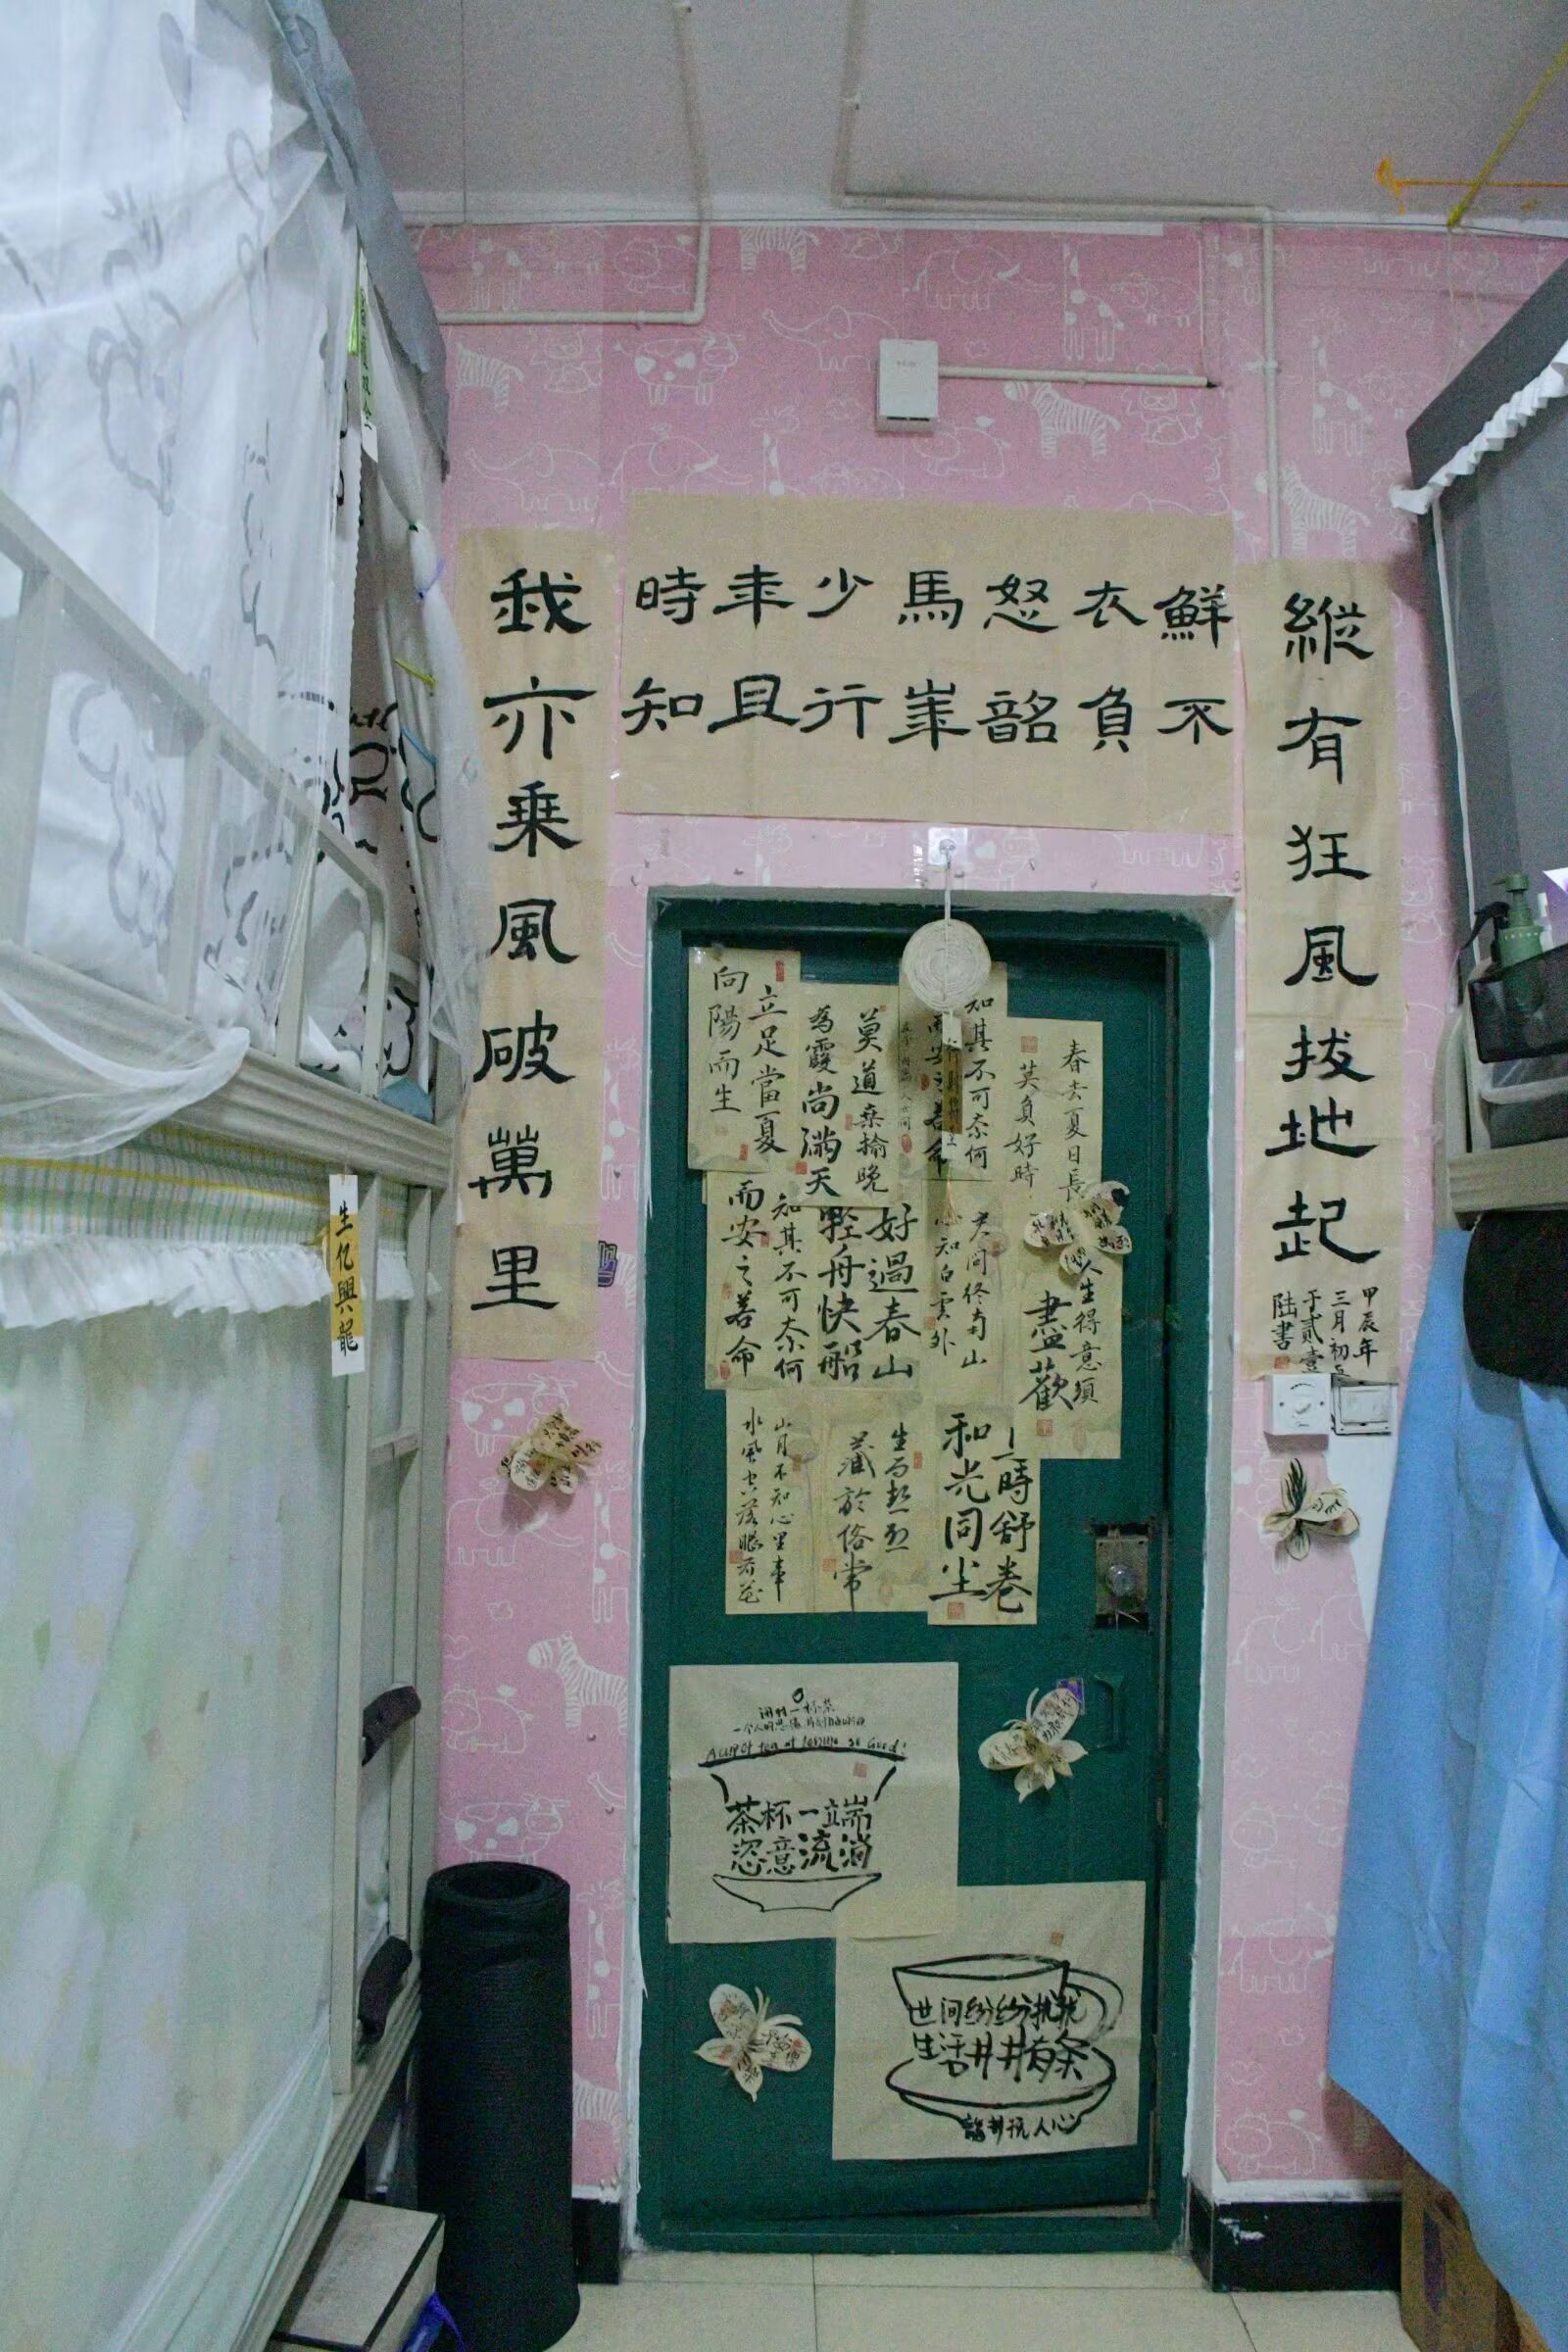 縱有狂風拔地起
我亦乗風破萬里
鮮衣怒馬少年時
不負韶華行且知
甲辰年
三月初五
于贰壹
陆書
立足當夏
向陽而生
莫道桑榆晚
為霞尚滿天
知其不可奈何
而安之若命
春去夏日長
莫負好時
知其不可奈何
而安之若命
好過春山
輕舟快船
君問終南山
心知白雲外
人生得意須
盡歡
山月不知心里事
水風空落眼前花
生而熱烈
藏於俗常
與時舒卷
和光同尘
一杯茶
A cup of tea
茶杯一端
恣意流淌
世间纷纷扰扰
生活井井有条
生亿興龍